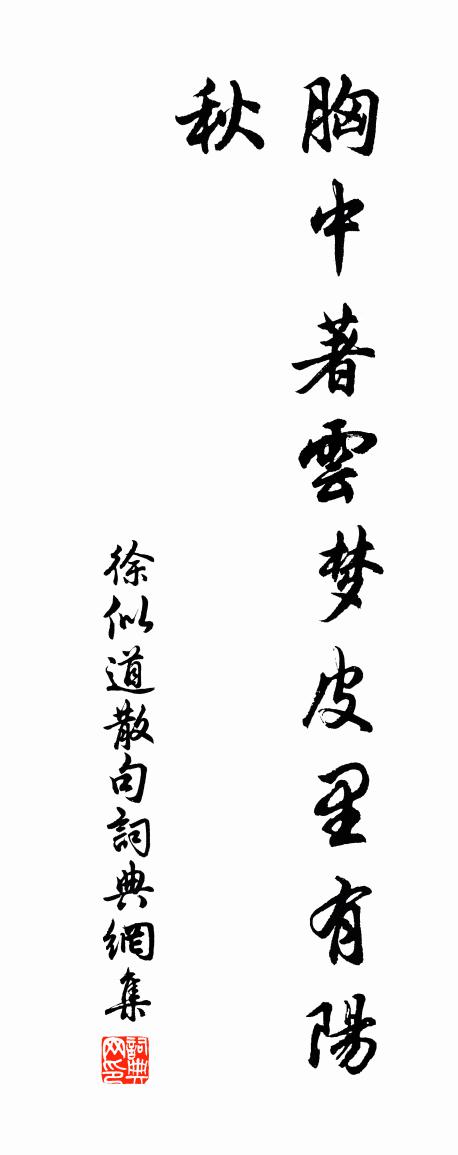 胸中著雲梦皮里有陽
秋
徐似道散句詞典網集
詞典网印